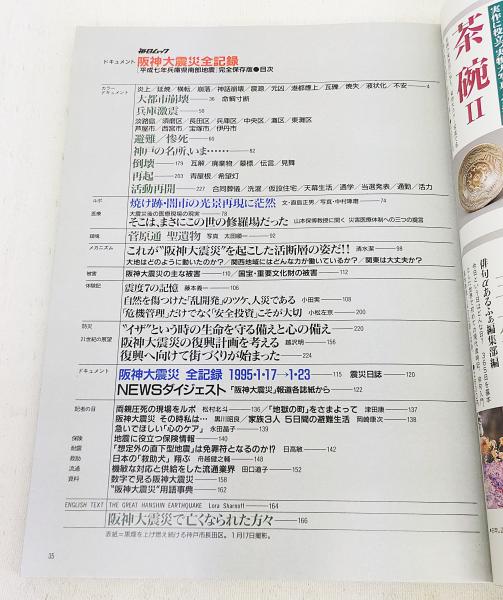 毎日ムック
ドキュメント 阪神大震災全記録
「平成七年兵庫県南部地震」完全保存版●目次
カラードキュメント 炎上／延焼／横転／崩落／神話崩壊／震源／元凶／港都煙上／瓦礫／焼失／液状化／不安——4
大都市崩壊——36 命綱寸断
兵庫激震——50
淡路島／須磨区／長田区／兵庫区／中央区／灘区／東灘区
芦屋市／西宮市／宝塚市／伊丹市
避難／惨死——65
神戸の名所、いま……——82
倒壊——179 瓦解／廃棄物／墓標／伝言／見舞
再起——203 青屋根／希望灯
活動再開——227 合同葬儀／洗濯／仮設住宅／天幕生活／通学／当選発表／通勤／活力
ルポ 焼け跡・闇市の光景再現に茫然 文・直島正男／写真・中村琢磨——74
医療 大震災後の医療現場の現実——78
そこは、まさにこの世の修羅場だった 山本保博教授に聞く 災害医療体制への三つの提言
環境 菅原通 聖遺物 写真 太田順一——92
メカニズム これが“阪神大震災”を起こした活断層の姿だ!! 清水潔——98
大地はどのように動いたのか?／関西地域にはどんな力が働いているか?／関東は大丈夫か?
被害 阪神大震災の主な被害——110／国宝・重要文化財の被害——112
体験記 震度7の記憶 藤本義一——106
自然を傷つけた「乱開発」のツケ、人災である 小田実——108
「危機管理」だけでなく「安全投資」こそが大切 小松左京——200
防災 “イザ”という時の生命を守る備えと心の備え——220
21世紀の展望 阪神大震災の復興計画を考える 越沢明——156
復興へ向けて街づくりが始まった——224
ドキュメント 阪神大震災 全記録 1995・1・17→1・23——115 震災日誌——120
NEWSダイジェスト 「阪神大震災」報道各誌紙から——122
記者の目 両親圧死の現場をルポ 松村北斗——136／「地獄の町」をさまよって 津田康——137
阪神大震災 その時私は… 黒川昭良／家族3人 5日間の避難生活 岡崎康次——138
急いでほしい「心のケア」 永田晶子——139
保険 地震に役立つ保険情報——140
耐震 「想定外の直下型地震」は免罪符となるのか!? 日高敏——142
救助 日本の「救助犬」翔ぶ 舟越健之輔——148
流通 機敏な対応と供給をした流通業界 田口道子——152
資料 数字で見る阪神大震災——158
“阪神大震災”用語事典——162
ENGLISH TEXT THE GREAT HANSHIN EARTHQUAKE Lora Sharnoff——164
阪神大震災で亡くなられた方々——166
表紙＝黒煙を上げ燃え続ける神戸市長田区。1月17日撮影。
35
茶碗II
俳句αあるふぁ編集部編